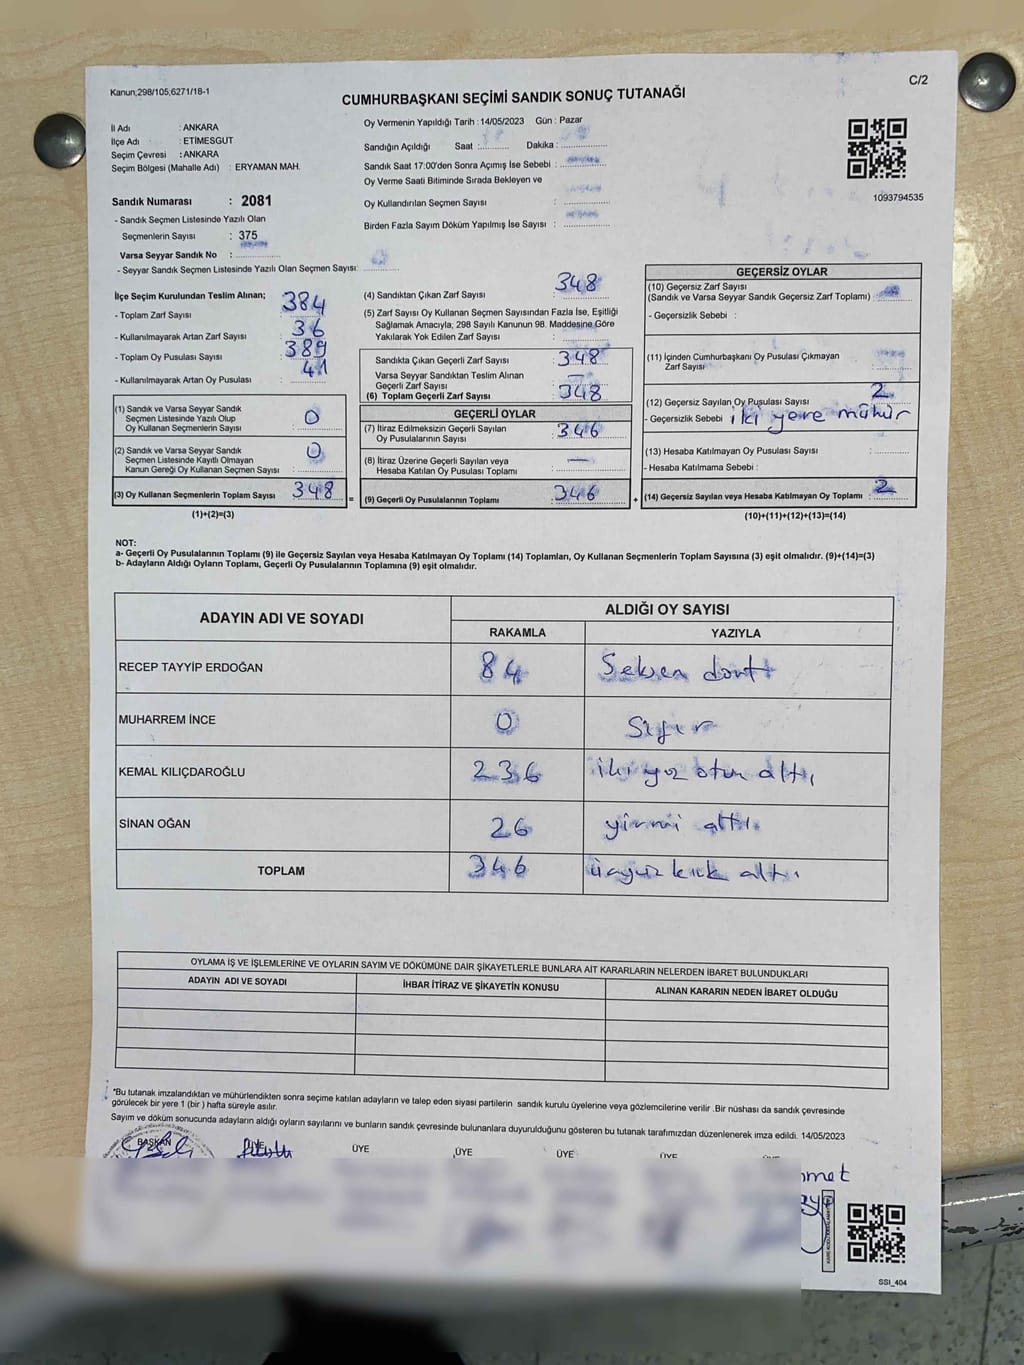 Kanun,298/105,6271/18-1
C/2
CUMHURBAŞKANI SEÇİMİ SANDIK SONUÇ TUTANAĞI
İl Adı : ANKARA
İlçe Adı : ETİMESGUT
Seçim Çevresi : ANKARA
Seçim Bölgesi (Mahalle Adı) : ERYAMAN MAH.
Sandık Numarası : 2081
- Sandık Seçmen Listesinde Yazılı Olan
Seçmenlerin Sayısı : 375
Varsa Seyyar Sandık No :
- Seyyar Sandık Seçmen Listesinde Yazılı Olan Seçmen Sayısı:
Oy Vermenin Yapıldığı Tarih : 14/05/2023 Gün : Pazar
Sandığın Açıldığı Saat : Dakika :
Sandık Saat 17:00'den Sonra Açımış İse Sebebi :
Oy Verme Saati Bitiminde Sırada Bekleyen ve
Oy Kullandırılan Seçmen Sayısı :
Birden Fazla Sayım Döküm Yapılmış İse Sayısı :
1093794535
İlçe Seçim Kurulundan Teslim Alınan;
- Toplam Zarf Sayısı : 384
- Kullanılmayarak Artan Zarf Sayısı : 36
- Toplam Oy Pusulası Sayısı : 389
- Kullanılmayarak Artan Oy Pusulası : 41
(1) Sandık ve Varsa Seyyar Sandık
Seçmen Listesinde Yazılı Olup
Oy Kullanan Seçmenlerin Sayısı : 0
(2) Sandık ve Varsa Seyyar Sandık
Seçmen Listesinde Kayıtlı Olmayan
Kanun Gereği Oy Kullanan Seçmen Sayısı : 0
(3) Oy Kullanan Seçmenlerin Toplam Sayısı : 348 =
(1)+(2)=(3)
(4) Sandıktan Çıkan Zarf Sayısı : 348
(5) Zarf Sayısı Oy Kullanan Seçmen Sayısından Fazla İse, Eşitliği
Sağlamak Amacıyla, 298 Sayılı Kanunun 98. Maddesine Göre
Yakılarak Yok Edilen Zarf Sayısı :
Sandıkta Çıkan Geçerli Zarf Sayısı : 348
Varsa Seyyar Sandıktan Teslim Alınan
Geçerli Zarf Sayısı : —
(6) Toplam Geçerli Zarf Sayısı : 348
GEÇERLİ OYLAR
(7) İtiraz Edilmeksizin Geçerli Sayılan
Oy Pusulalarının Sayısı : 346
(8) İtiraz Üzerine Geçerli Sayılan veya
Hesaba Katılan Oy Pusulası Toplamı : —
(9) Geçerli Oy Pusulalarının Toplamı : 346 +
GEÇERSİZ OYLAR
(10) Geçersiz Zarf Sayısı
(Sandık ve Varsa Seyyar Sandık Geçersiz Zarf Toplamı) :
- Geçersizlik Sebebi :
(11) İçinden Cumhurbaşkanı Oy Pusulası Çıkmayan
Zarf Sayısı :
(12) Geçersiz Sayılan Oy Pusulası Sayısı : 2
- Geçersizlik Sebebi : iki yere mühür
(13) Hesaba Katılmayan Oy Pusulası Sayısı :
- Hesaba Katılmama Sebebi :
(14) Geçersiz Sayılan veya Hesaba Katılmayan Oy Toplamı : 2
(10)+(11)+(12)+(13)=(14)
NOT:
a- Geçerli Oy Pusulalarının Toplamı (9) ile Geçersiz Sayılan veya Hesaba Katılmayan Oy Toplamı (14) Toplamları, Oy Kullanan Seçmenlerin Toplam Sayısına (3) eşit olmalıdır. (9)+(14)=(3)
b- Adayların Aldığı Oyların Toplamı, Geçerli Oy Pusulalarının Toplamına (9) eşit olmalıdır.
ADAYIN ADI VE SOYADI ALDIĞI OY SAYISI
RAKAMLA YAZIYLA
RECEP TAYYİP ERDOĞAN 84 Seksen dört
MUHARREM İNCE 0 Sıfır
KEMAL KILIÇDAROĞLU 236 iki yüz otuz altı
SİNAN OĞAN 26 yirmi altı
TOPLAM 346 üçyüz kırk altı
OYLAMA İŞ VE İŞLEMLERİNE VE OYLARIN SAYIM VE DÖKÜMÜNE DAİR ŞİKAYETLERLE BUNLARA AİT KARARLARIN NELERDEN İBARET BULUNDUKLARI
ADAYIN ADI VE SOYADI İHBAR İTİRAZ VE ŞİKAYETİN KONUSU ALINAN KARARIN NEDEN İBARET OLDUĞU
*Bu tutanak imzalandıktan ve mühürlendikten sonra seçime katılan adayların ve talep eden siyasi partilerin sandık kurulu üyelerine veya gözlemcilerine verilir .Bir nüshası da sandık çevresinde
görülecek bir yere 1 (bir ) hafta süreyle asılır.
Sayım ve döküm sonucunda adayların aldığı oyların sayılarını ve bunların sandık çevresinde bulunanlara duyurulduğunu gösteren bu tutanak tarafımızdan düzenlenerek imza edildi. 14/05/2023
BAŞKAN ÜYE ÜYE ÜYE ÜYE ÜYE
SSI_404